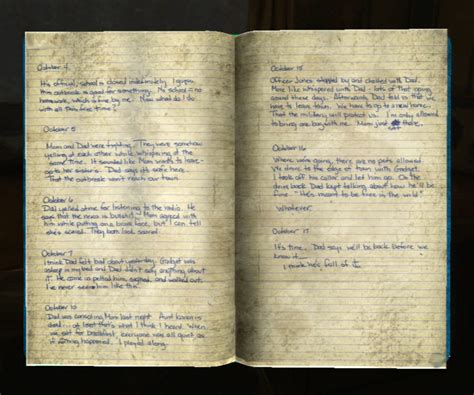 October 4
It's official, school is closed indefinitely. I guess
this outbreak is good for something. No school =
no homework, which is fine by me! Now what do I do
with all this free time?
October 5
Mom and Dad were fighting. They were somehow
yelling at each other while whispering at the
same time. It sounded like Mom wants to leave -
go to her sister's. Dad says it's safe here
That the outbreak won't reach our town.
October 6
Dad yelled at me for listening to the radio. He
says that the news is bullshit. Mom agreed with
him while putting on a brave face, but I can tell
she's scared. They both look scared
October 7
I think Dad felt bad about yesterday. Gadget was
asleep in my bed and Dad didn't say anything about
it. He came in petted him, and walked out.
I've never seen him like this.
October 10
Dad was consoling Mom last night. Aunt Karen is
dead... at least that's what I think I heard. When
we sat for breakfast, everyone was all quiet as
if nothing happened. I played along.
October 15
Officer Jones stopped by and chatted with Dad.
More like whispered with Dad - lots of that going
around these days. Afterwards, Dad tell us that we
have to leave town. We have to go to a new home.
That the military will protect us. I'm only allowed
to bring one bag with me. Mom just
October 16
Where we're going, there are no pets allowed.
We drove to the edge of town with Gadget.
I took off his collar and let him go. On the
drive back Dad kept talking about how he'll be
fine. "He's meant to be free in the wild."
Whatever.
October 17
It's time. Dad says we'll be back before we
know it...
I think he's full of it